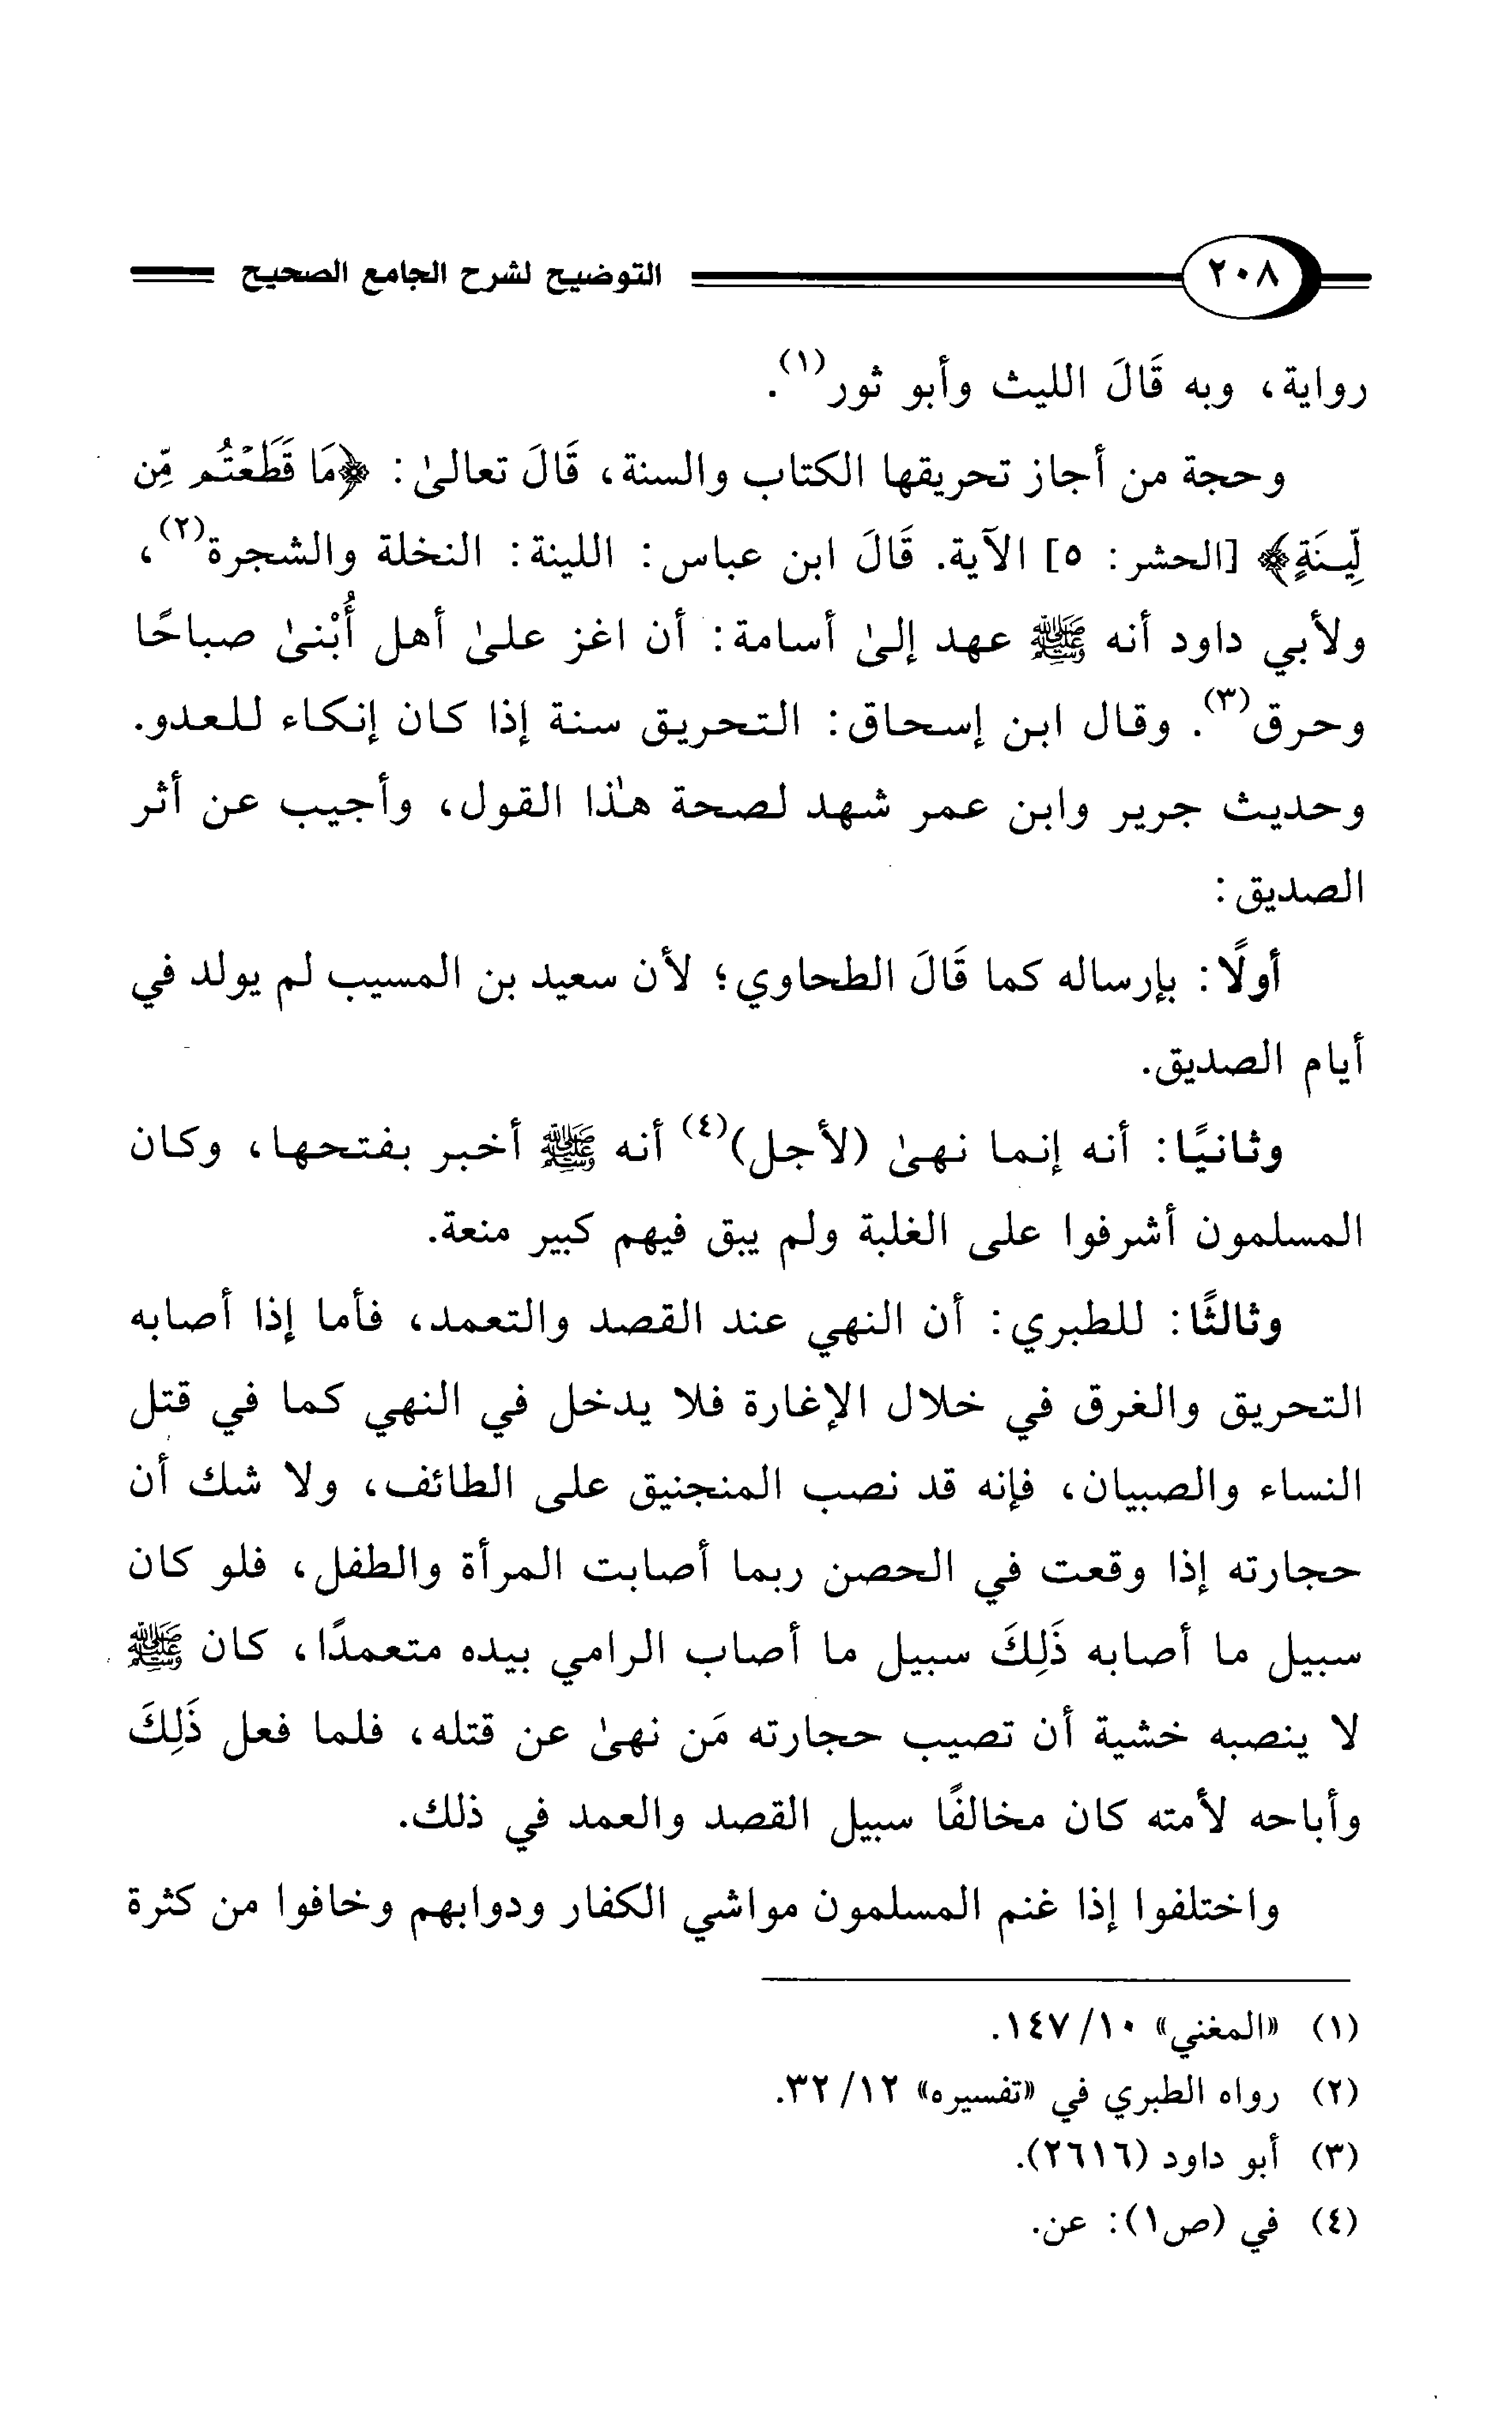 ٢٠٨ التوضيح لشرح الجامع الصحيح
رواية، وبه قَالَ الليث وأبو ثور(١).
وحجة من أجاز تحريقها الكتاب والسنة، قَالَ تعالىٰ: ﴿مَا قَطَعْتُم مِّن
لِّينَةٍ﴾ [الحشر: ٥] الآية. قَالَ ابن عباس: اللينة: النخلة والشجرة(٢)،
ولأبي داود أنه ﷺ عهد إلىٰ أسامة: أن اغز علىٰ أهل أُبْنىٰ صباحًا
وحرق(٣). وقال ابن إسحاق: التحريق سنة إذا كان إنكاء للعدو.
وحديث جرير وابن عمر شهد لصحة هذا القول، وأجيب عن أثر
الصديق:
أولًا: بإرساله كما قَالَ الطحاوي؛ لأن سعيد بن المسيب لم يولد في
أيام الصديق.
وثانيًا: أنه إنما نهىٰ (لأجل)(٤) أنه ﷺ أخبر بفتحها، وكان
المسلمون أشرفوا على الغلبة ولم يبق فيهم كبير منعة.
وثالثًا: للطبري: أن النهي عند القصد والتعمد، فأما إذا أصابه
التحريق والغرق في خلال الإغارة فلا يدخل في النهي كما في قتل
النساء والصبيان، فإنه قد نصب المنجنيق على الطائف، ولا شك أن
حجارته إذا وقعت في الحصن ربما أصابت المرأة والطفل، فلو كان
سبيل ما أصابه ذَلِكَ سبيل ما أصاب الرامي بيده متعمدًا، كان ﷺ
لا ينصبه خشية أن تصيب حجارته مَن نهىٰ عن قتله، فلما فعل ذَلِكَ
وأباحه لأمته كان مخالفًا سبيل القصد والعمد في ذلك.
واختلفوا إذا غنم المسلمون مواشي الكفار ودوابهم وخافوا من كثرة
(١) «المغني» ١٠/ ١٤٧.
(٢) رواه الطبري في «تفسيره» ١٢/ ٣٢.
(٣) أبو داود (٢٦١٦).
(٤) في (ص١): عن.